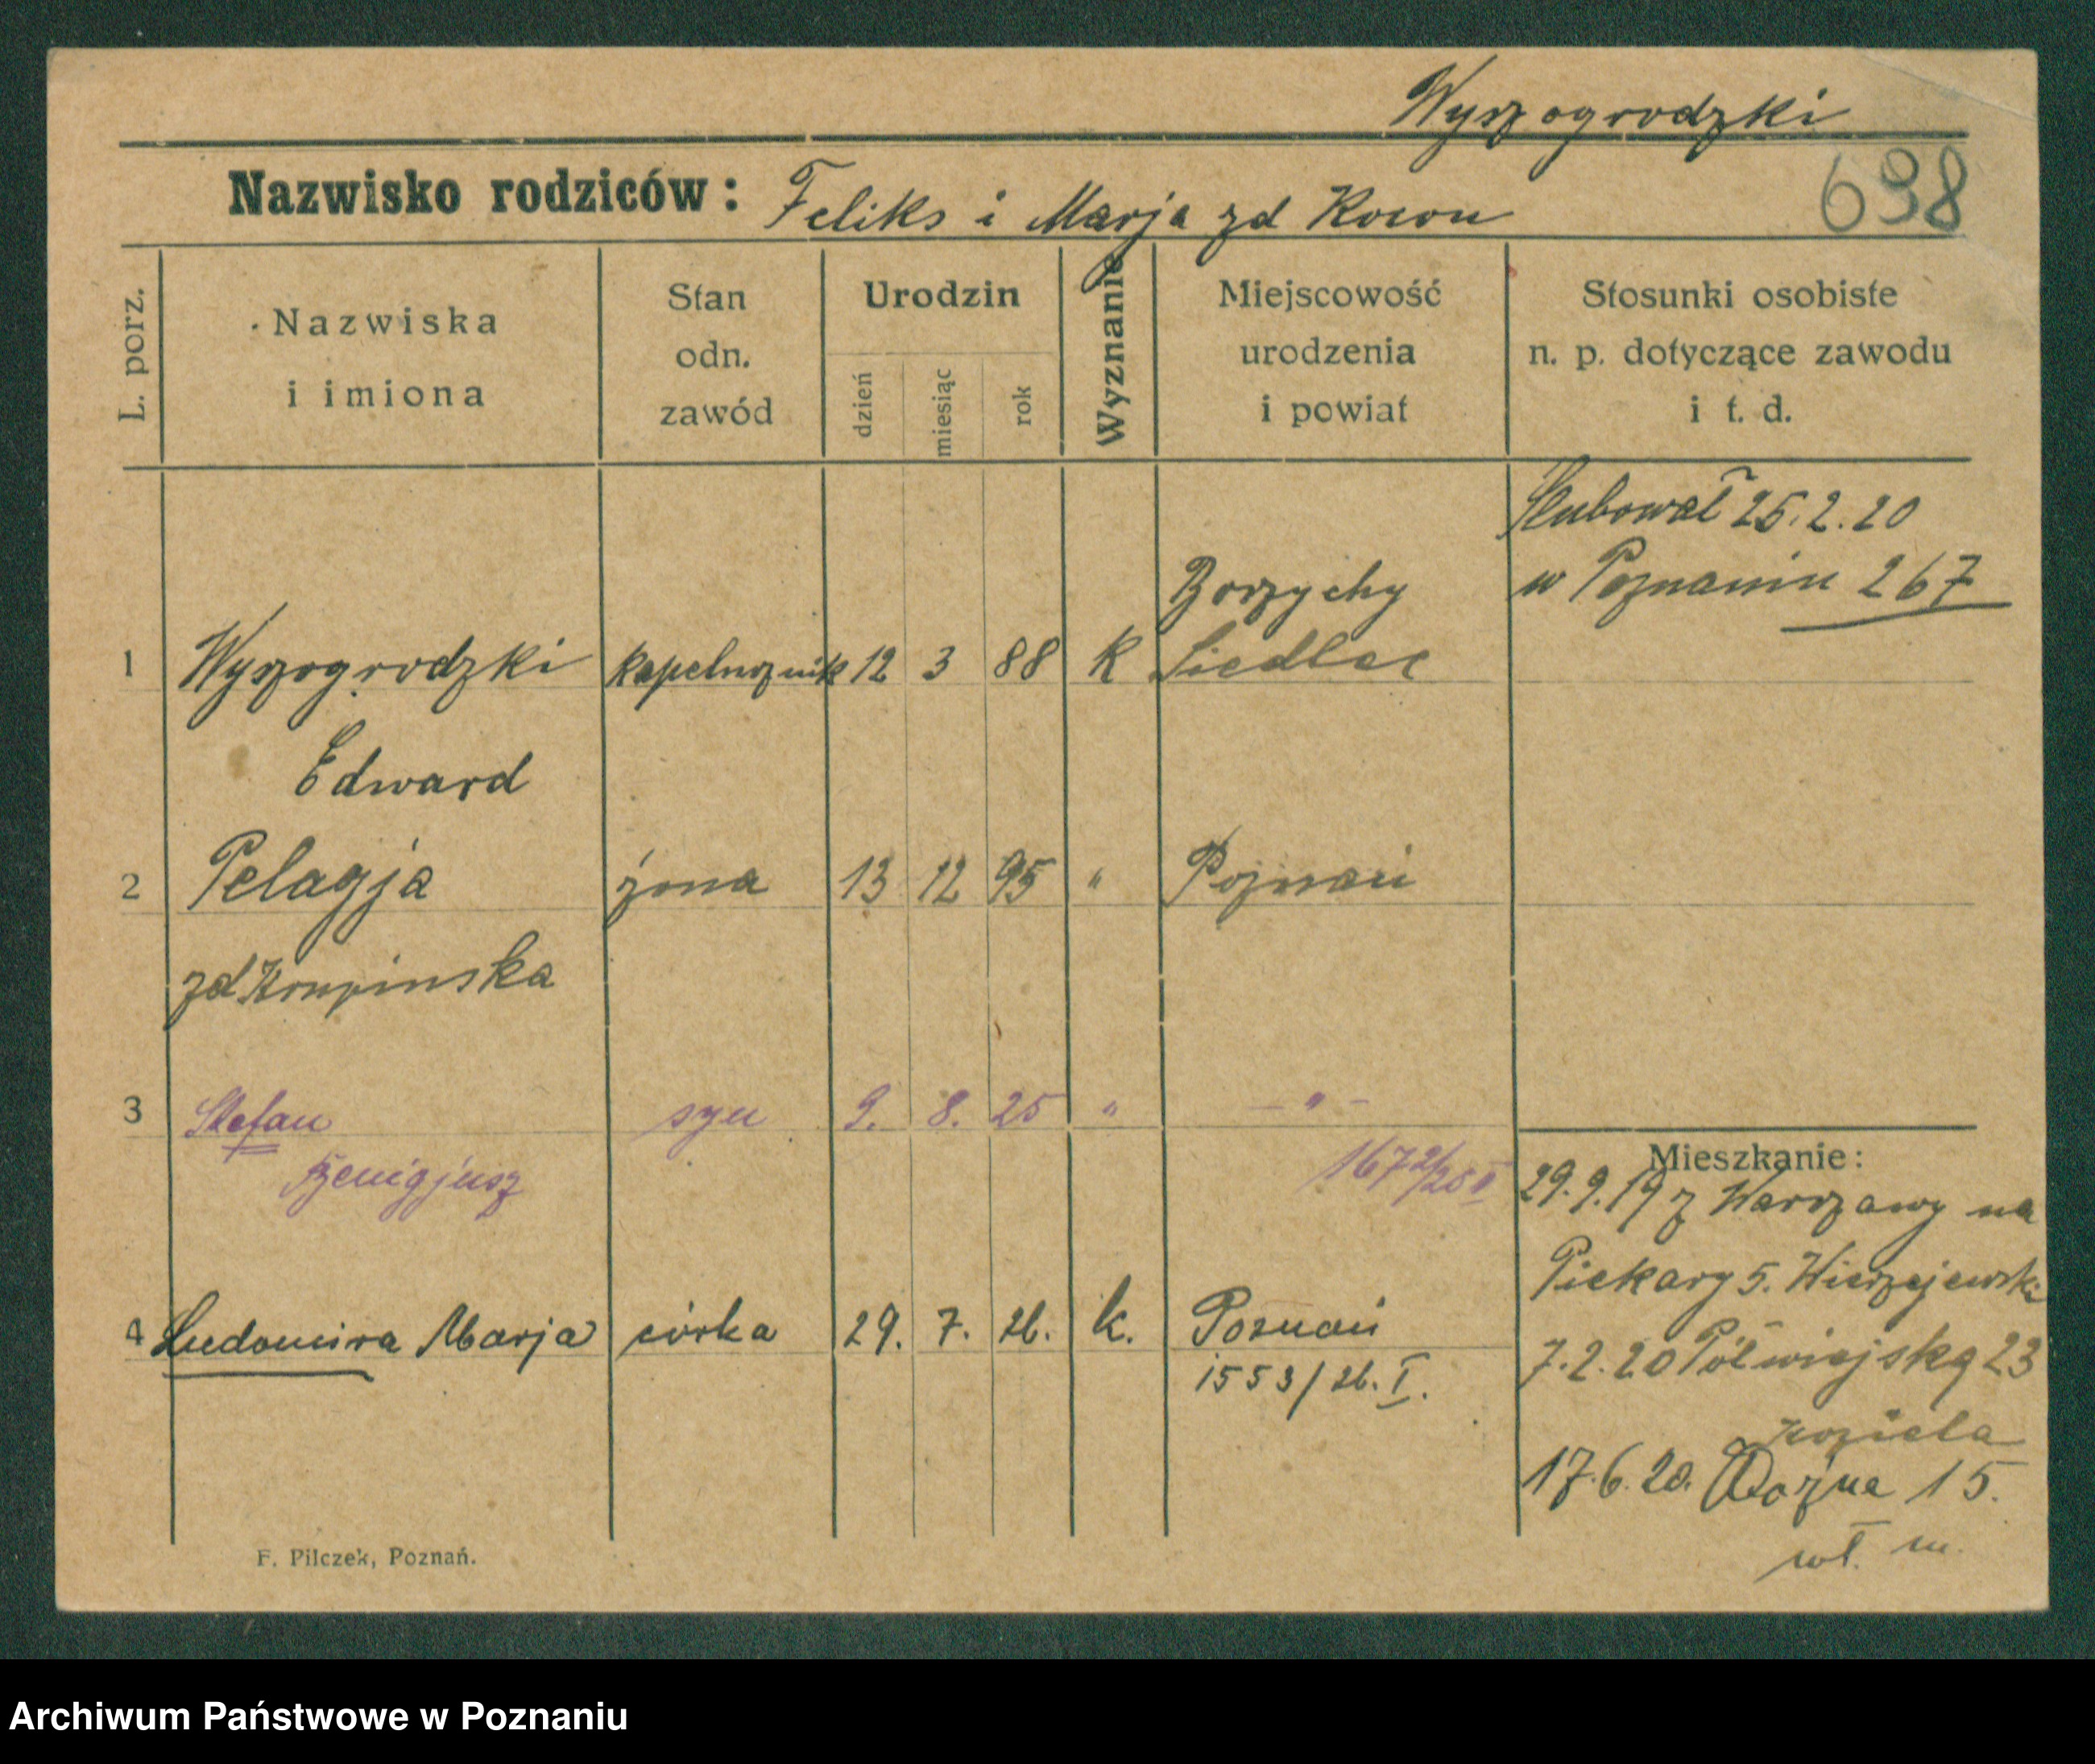 Wyszogrodzki
Nazwisko rodziców: Feliks i Marja zd
698
L. porz.
Nazwiska
i imiona
Stan
odn.
zawód
Urodzin
dzień
miesiąc
rok
Wyznanie
Miejscowość
urodzenia
i powiat
Stosunki osobiste
n. p. dotyczące zawodu
i t. d.
Ślubował 25.2.20
w Poznaniu 267
Borzychy
1 Wyszogrodzki kapelusznik 12 3 88 K Siedlec
Edward
2 Pelagja żona 13 12 95 " Poznań
zd Krupinska
3 Stefan syn 9. 8. 25 " – " –
Benigjusz
1672/25 II
4 Ludomira Marja córka 29. 7. 26. k. Poznań
1553/26. I.
Mieszkanie:
29.9.19 z Warszawy na
Piekary 5. Wierzejewski
7.2.20 Półwiejską 23
Koziela
17.6.20. Woźna 15.
wł. m.
F. Pilczek, Poznań.
Archiwum Państwowe w Poznaniu